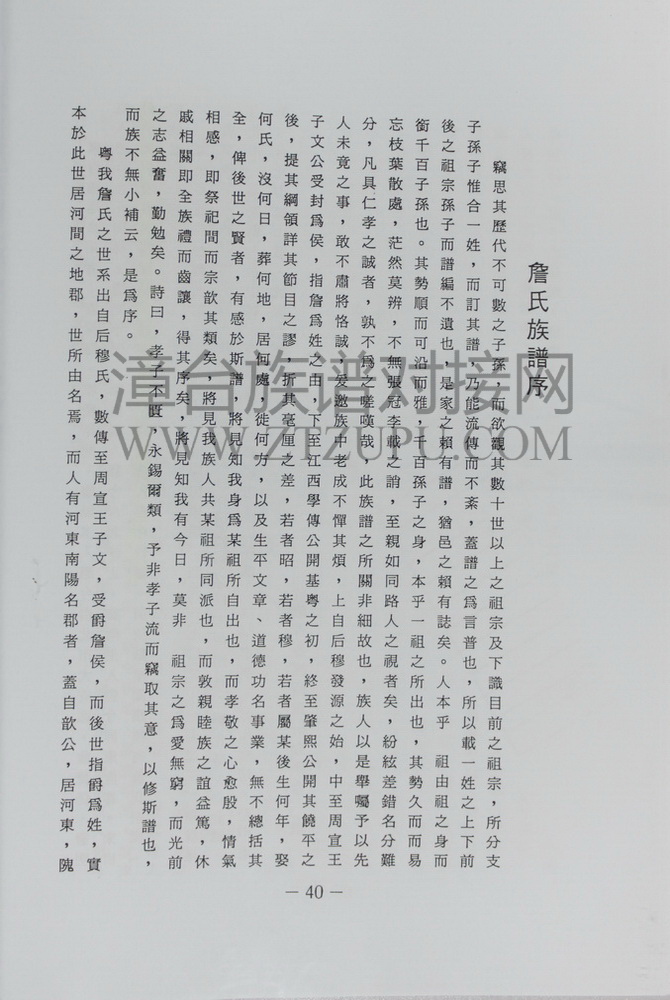 詹氏族譜序
竊思其歷代不可數之子孫，而欲觀其數十世以上之祖宗及下識目前之祖宗，所分支
子孫子惟合一姓，而訂其譜，乃能流傳而不紊，蓋譜之爲言普也，所以載一姓之上下前
後之祖宗孫子而譜編不遺也。是家之賴有譜，猶邑之賴有誌矣。人本乎　祖由祖之身而
銜千百子孫也。其勢順而可沿而雅，千百孫子之身，本乎一祖之所出也，其勢久而而易
忘枝葉散處，茫然莫辨，不無張冠李載之誚，至親如同路人之視者矣，紛絃差錯名分難
分，凡具仁孝之誠者，孰不爲之嗟嘆哉，此族譜之所關非細故也，族人以是舉囑予以先
人未竟之事，敢不肅將恪誠，爰邀族中老成不憚其煩，上自后穆發源之始，中至周宣王
子文公受封爲侯，指詹爲姓之由，下至江西學傳公開基粵之初，終至肇熙公開其饒平之
後，提其綱領詳其節目之謬，折其毫厘之差，若者昭，若者穆，若者屬某後生何年，娶
何氏，沒何日，葬何地，居何處，徙何方，以及生平文章、道德功名事業，無不總括其
全，俾後世之賢者，有感於斯譜，將見知我身爲某祖所自出也，而孝敬之心愈殷，情氣
相感，即祭祀間而宗歆其類矣，將見我族人共某祖所同派也，而敦親睦族之誼益篤，休
戚相關即全族禮而齒讓，得其序矣，將見知我有今日，莫非　祖宗之爲愛無窮，而光前
之志益奮，勤勉矣。詩曰，孝子不匱，永錫爾類，予非孝子流而竊取其意，以修斯譜也，
而族不無小補云，是爲序。
粵我詹氏之世系出自后穆氏，數傳至周宣王子文，受爵詹侯，而後世指爵爲姓，實
本於此世居河間之地郡，世所由名焉，而人有河東南陽名郡者，蓋自歆公，居河東，隗
— 40 —
漳台族谱对接网
WWW.ZTZUPU.COM